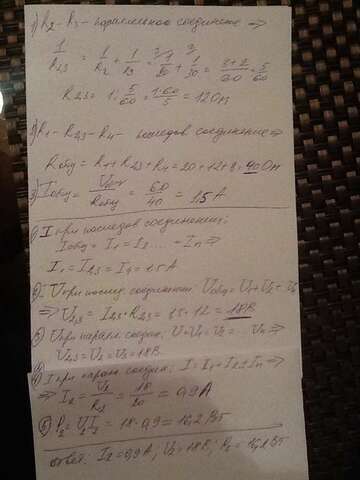 1) R2 - R3 - параллельное соединение ⇒
1/R23 = 1/R2 + 1/R3 = 1/20 + 1/30 = (3+2)/60 = 5/60
R23 = 1 : 5/60 = 1·60/5 = 12 Ом
2) R1 - R23 - R4 - последов соединение ⇒
Rобщ = R1 + R23 + R4 = 20 + 12 + 8 = 40 Ом
3) Iобщ = Uобщ/Rобщ = 60/40 = 1,5 А
1) I при последов соединении:
Iобщ = I1 = I2 ... = In ⇒
I1 = I23 = I4 = 1.5 А
2) U при послед соединении: Uобщ = U1 + U2 +
⇒ U23 = I23 · R23 = 1.5 · 12 = 18 В
3) U при паралл соедин: U = U1 = U2 = ... Un ⇒
U23 = U2 = U3 = 18 В
4) I при паралл соедин: I = I1 + I2 + In ⇒
⇒ I2 = U2/R2 = 18/20 = 0,9 А
5) P2 = U2 I2 = 18 · 0,9 = 16,2 Вт
ответ: I2 = 0,9 А; U2 = 18 В; P2 = 16,2 Вт